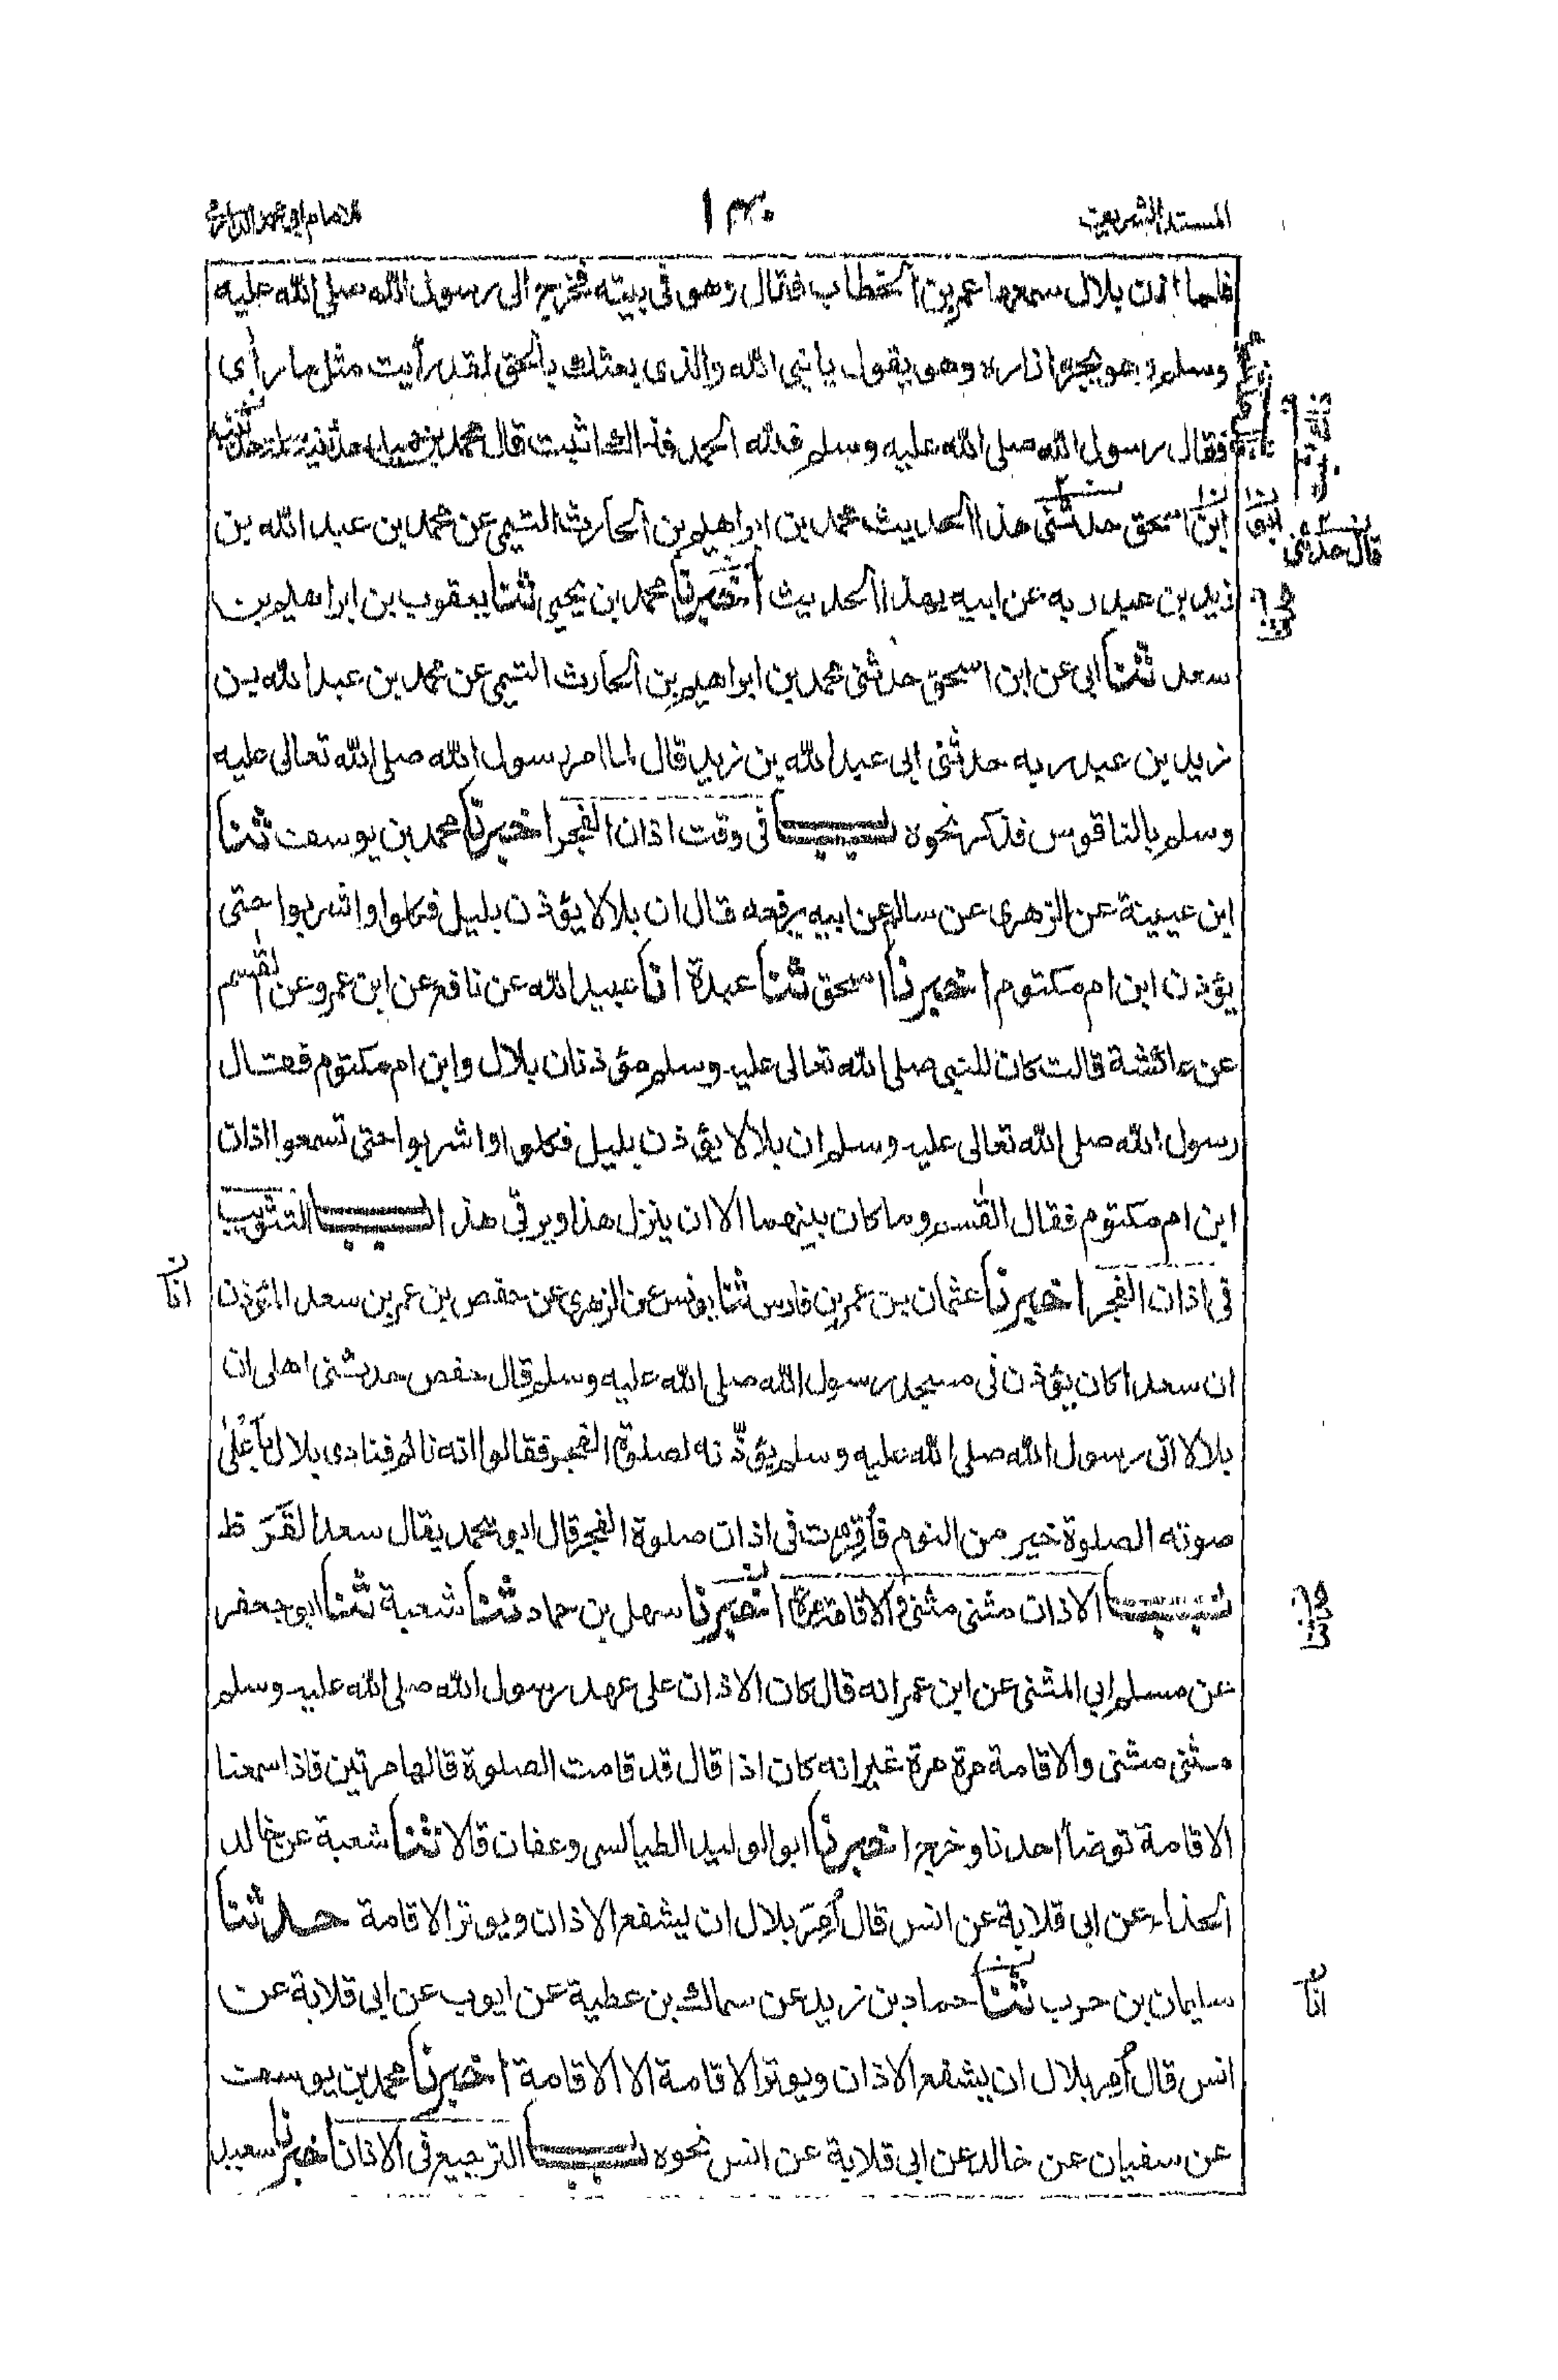 المسند الشريف
١٣٠
للامام ابي محمد الدارمي
فلما اذن بلال سمعها عمر بن الخطاب فقال وهو في بيته فخرج الى رسول الله صلى الله عليه
وسلم وهو يجر ازاره وهو يقول يا نبي الله والذي بعثك بالحق لقد رأيت مثل ما رأى
فقال رسول الله صلى الله عليه وسلم فلله الحمد فذلك اثبت قال محمد بن حميد حدثنيه سلمة حدثني
ابن اسحق حدثني هذا الحديث محمد بن ابراهيم بن الحارث التيمي عن محمد بن عبد الله بن
قال حدثني
زيد بن عبد ربه عن ابيه بهذا الحديث اخبرنا محمد بن يحيى ثنا يعقوب بن ابراهيم بن
سعد ثنا ابي عن ابن اسحق حدثني محمد بن ابراهيم بن الحارث التيمي عن محمد بن عبد الله بن
زيد بن عبد ربه حدثني ابي عبد الله بن زيد قال لما امر رسول الله صلى الله تعالى عليه
وسلم بالناقوس فذكر نحوه باب في وقت اذان الفجر اخبرنا محمد بن يوسف ثنا
ابن عيينة عن الزهري عن سالم عن ابيه يرفعه قال ان بلالا يؤذن بليل فكلوا واشربوا حتى
يؤذن ابن ام مكتوم اخبرنا اسحق ثنا عبدة انا عبيد الله عن نافع عن ابن عمر وعن القسم
عن عائشة قالت كان للنبي صلى الله تعالى عليه وسلم مؤذنان بلال وابن ام مكتوم فقال
رسول الله صلى الله تعالى عليه وسلم ان بلالا يؤذن بليل فكلوا واشربوا حتى تسمعوا اذان
ابن ام مكتوم فقال القسم وما كان بينهما الا ان ينزل هذا ويرقى هذا باب التثويب
في اذان الفجر اخبرنا عثمان بن عمر بن فارس ثنا يونس عن الزهري عن حفص بن عمر بن سعد المؤذن
انا
ان سعدا كان يؤذن في مسجد رسول الله صلى الله عليه وسلم قال حفص حدثني اهلي ان
بلالا اتى رسول الله صلى الله عليه وسلم يؤذنه لصلوة الفجر فقالوا انه نائم فنادى بلال بأعلى
صوته الصلوة خير من النوم فأقرت في اذان صلوة الفجر قال ابو محمد يقال سعد القرظ
باب الاذان مثنى مثنى والاقامة مرة اخبرنا سهل بن حماد ثنا شعبة ثنا ابو جعفر
حدثنا
عن مسلم ابي المثنى عن ابن عمر انه قال كان الاذان على عهد رسول الله صلى الله عليه وسلم
مثنى مثنى والاقامة مرة مرة غير انه كان اذا قال قد قامت الصلوة قالها مرتين فاذا سمعنا
الاقامة توضأ احدنا وخرج اخبرنا ابو الوليد الطيالسي وعفان قالا ثنا شعبة عن خالد
الحذاء عن ابي قلابة عن انس قال أمر بلال ان يشفع الاذان ويوتر الاقامة حدثنا
سليمان بن حرب ثنا حماد بن زيد عن سماك بن عطية عن ايوب عن ابي قلابة عن
انا
انس قال أمر بلال ان يشفع الاذان ويوتر الاقامة الا الاقامة اخبرنا محمد بن يوسف
عن سفيان عن خالد عن ابي قلابة عن انس نحوه باب الترجيع في الاذان اخبرنا سعيد